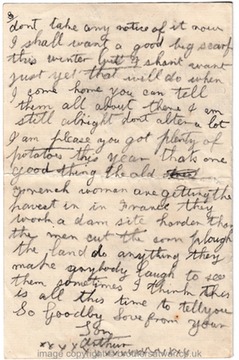 3
dont take any notice of it now
I shall want a good big scarf
this winter but I shant want
just yet that will do when
I come home you can tell
them all about there I am
still alright dont alter a lot
I am please you got plenty of
potatoes this year thats one
good thing the old
French women are getting the
havest in in France they
work a dam site harder than
the men cut the corn plough
the land do anything they
make anybody laugh to see
them sometimes I think this
is all this time to tell you
So Goodby Love from Your
Son
xxxx Arthur